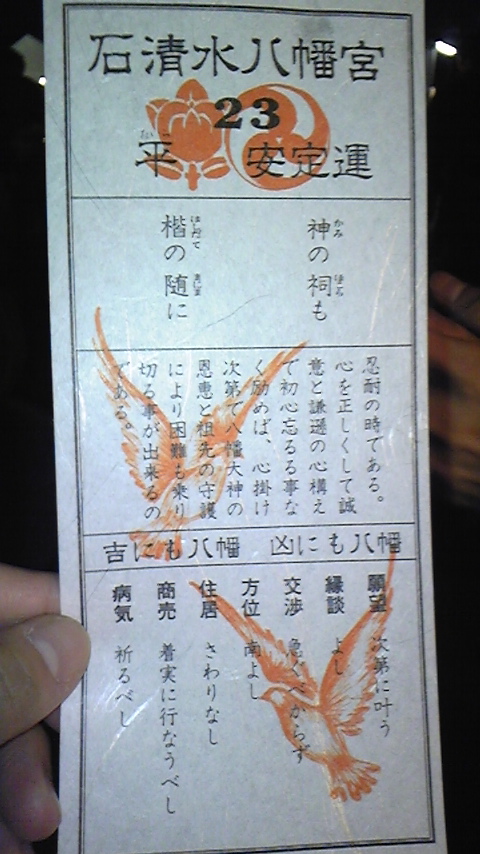 石清水八幡宮
23
平 安定運
神の祠も
楷の随に
忍耐の時である。
心を正しくして誠
意と謙遜の心構え
で初心忘るる事な
く励めば、心掛け
次第で八幡大神の
恩恵と祖先の守護
により困難も乗り
切る事が出来るの
である。
吉にも八幡 凶にも八幡
願望 次第に叶う
縁談 よし
交渉 急ぐべからず
方位 南よし
住居 さわりなし
商売 着実に行なうべし
病気 祈るべし